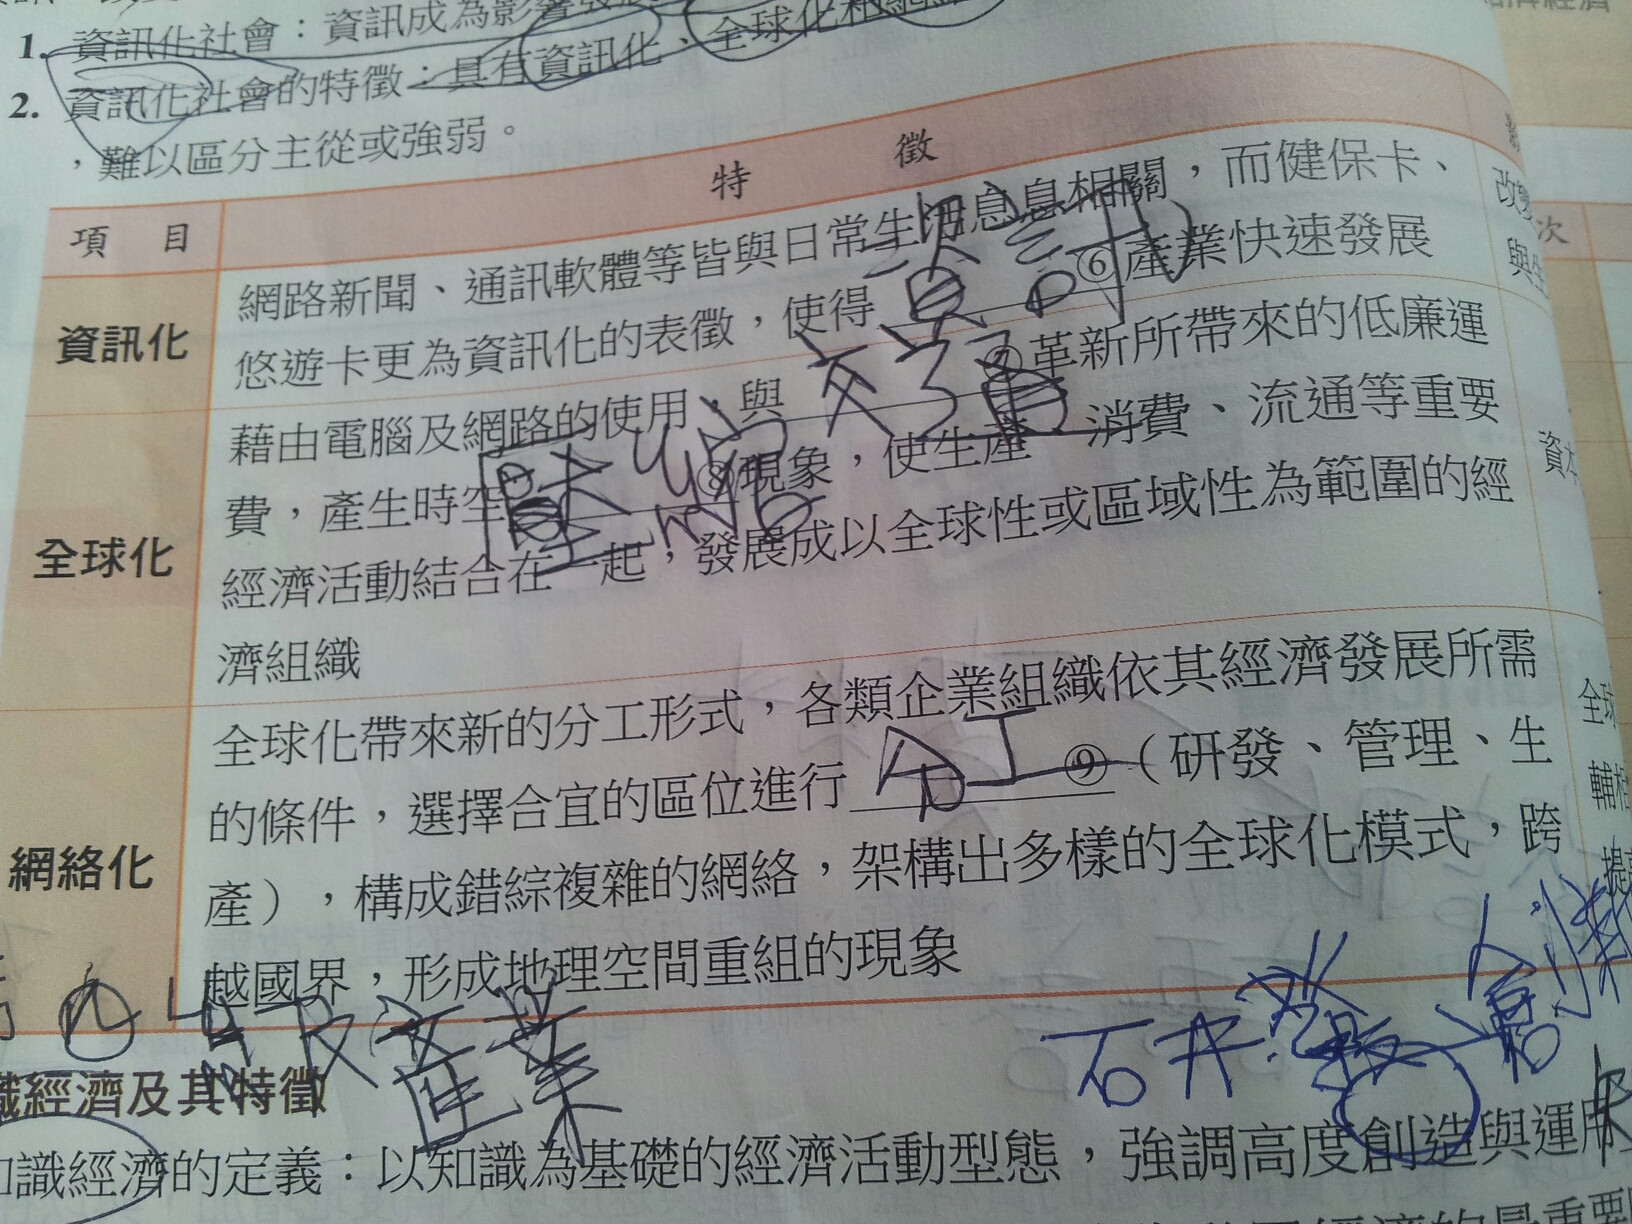 1. 資訊化社會：資訊成為影響發
2. 資訊化社會的特徵：具有資訊化、全球化和網絡
，難以區分主從或強弱。
項 目 特 徵
資訊化
網路新聞、通訊軟體等皆與日常生活息息相關，而健保卡、
悠遊卡更為資訊化的表徵，使得 資訊 ⑥產業快速發展
全球化
藉由電腦及網路的使用，與 交通 ⑦革新所帶來的低廉運
費，產生時空 壓縮 ⑧現象，使生產、消費、流通等重要
經濟活動結合在一起，發展成以全球性或區域性為範圍的經
濟組織
網絡化
全球化帶來新的分工形式，各類企業組織依其經濟發展所需
的條件，選擇合宜的區位進行 分工 ⑨（研發、管理、生
產），構成錯綜複雜的網絡，架構出多樣的全球化模式，跨
越國界，形成地理空間重組的現象
改變
與生
資本
全球
輔
提
次
第四級產業
石井
識經濟及其特徵
知識經濟的定義：以知識為基礎的經濟活動型態，強調高度創造與運用
經濟的最重要